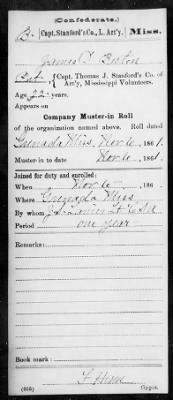 (Confederate.)
B. Capt. Stanford's Co., L. Art'y. Miss.
James
Capt. Thomas J. Stanford's Co. of
Art'y, Mississippi Volunteers.
Age 22 years.
Appears on
Company Muster-in Roll
of the organization named above. Roll dated
Grenada Miss, Nov 6, 1861.
Muster-in to date Nov 6, 1861.
Joined for duty and enrolled:
When Nov 6, 186 .
Where Grenada Miss
By whom Lt C.S.A
Period one year
Remarks:
Book mark:
(655) Copyist.